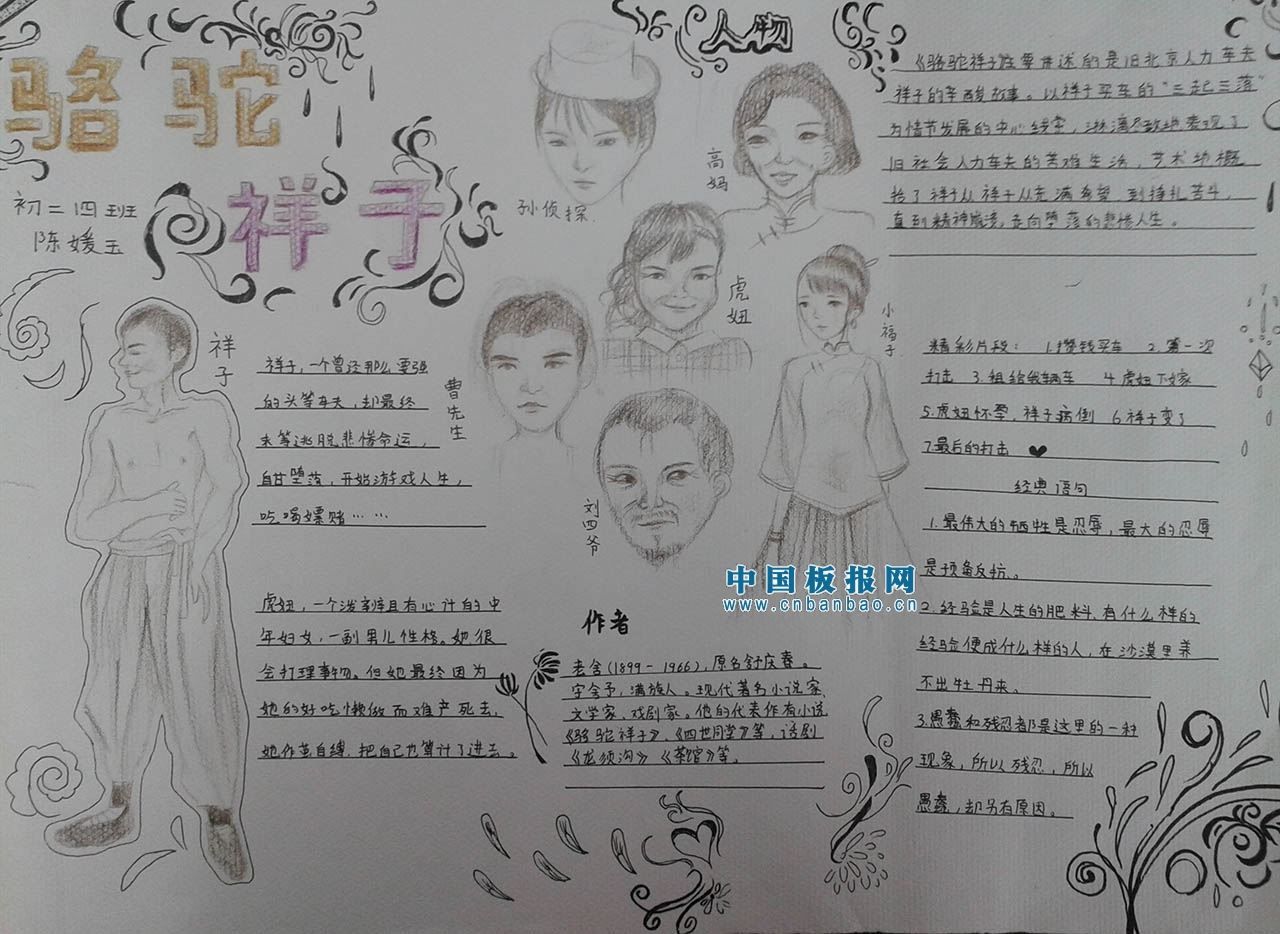 骆驼
祥子
初二四班
陈媛玉
人物
孙侦探
高妈
虎妞
小福子
曹先生
刘四爷
祥子
祥子,一个曾经那么要强
的头等车夫,却最终
未等逃脱悲惨命运,
自甘堕落,开始游戏人生,
吃喝嫖赌……
虎妞,一个泼辣且有心计的中
年妇女,一副男儿性格。她很
会打理事物。但她最终因为
她的好吃懒做而难产死去,
她作茧自缚,把自己也算计了进去。
作者
老舍(1899-1966),原名舒庆春。
字舍予,满族人。现代著名小说家
文学家、戏剧家。他的代表作有小说
《骆驼祥子》、《四世同堂》等,话剧
《龙须沟》《茶馆》等。
《骆驼祥子》主要讲述的是旧北京人力车夫
祥子的辛酸故事。以祥子买车的“三起三落”
为情节发展的中心线索,淋漓尽致地表现了
旧社会人力车夫的苦难生活,艺术地概
括了祥子从祥子从充满希望,到挣扎苦斗,
直到精神崩溃,走向堕落的悲惨人生。
精彩片段: 1.攒钱买车 2.第一次
打击 3.租给我辆车 4.虎妞下嫁
5.虎妞怀孕,祥子病倒 6祥子变了
7.最后的打击
经典语句
1.最伟大的牺牲是忍辱,最大的忍辱
是预备反抗。
2.经验是人生的肥料,有什么样的
经验便成什么样的人,在沙漠里养
不出牡丹来。
3.愚蠢和残忍都是这里的一种
现象,所以残忍,所以
愚蠢,却另有原因。
中国板报网
www.cnbanbao.cn